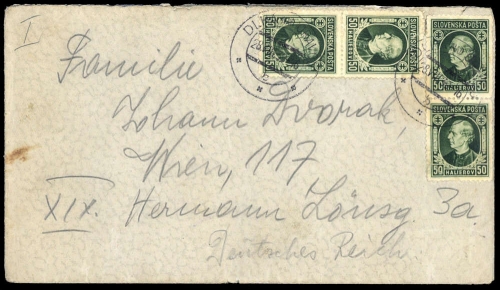 I
Familie
Johann Dvorak,
Wien, 117
XIX. Hermann Lönsg. 3a.
Deutsches Reich.
SLOVENSKÁ POŠTA
50 HALIEROV 50
SLOVENSKÁ POŠTA
50 HALIEROV 50
SLOVENSKÁ POŠTA
50 50
SLOVENSKÁ POŠTA
50 HALIEROV 50